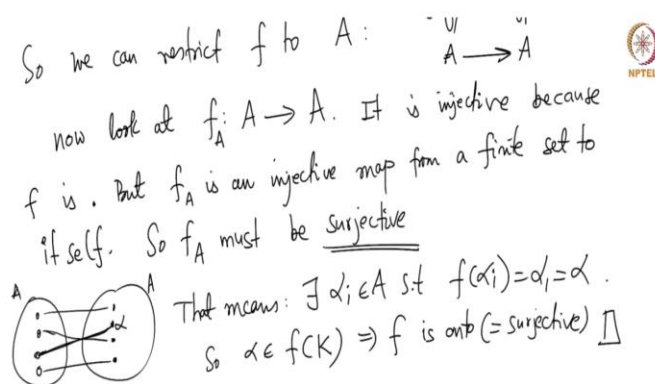 So we can restrict f to A :
U| U|
A ⟶ A
NPTEL
now look at f_A : A → A. It is injective because
f is. But f_A is an injective map from a finite set to
itself. So f_A must be surjective
A A
α
That means: ∃ α_i ∈ A s.t f(α_i) = α_1 = α.
So α ∈ f(K) ⇒ f is onto (= surjective) □